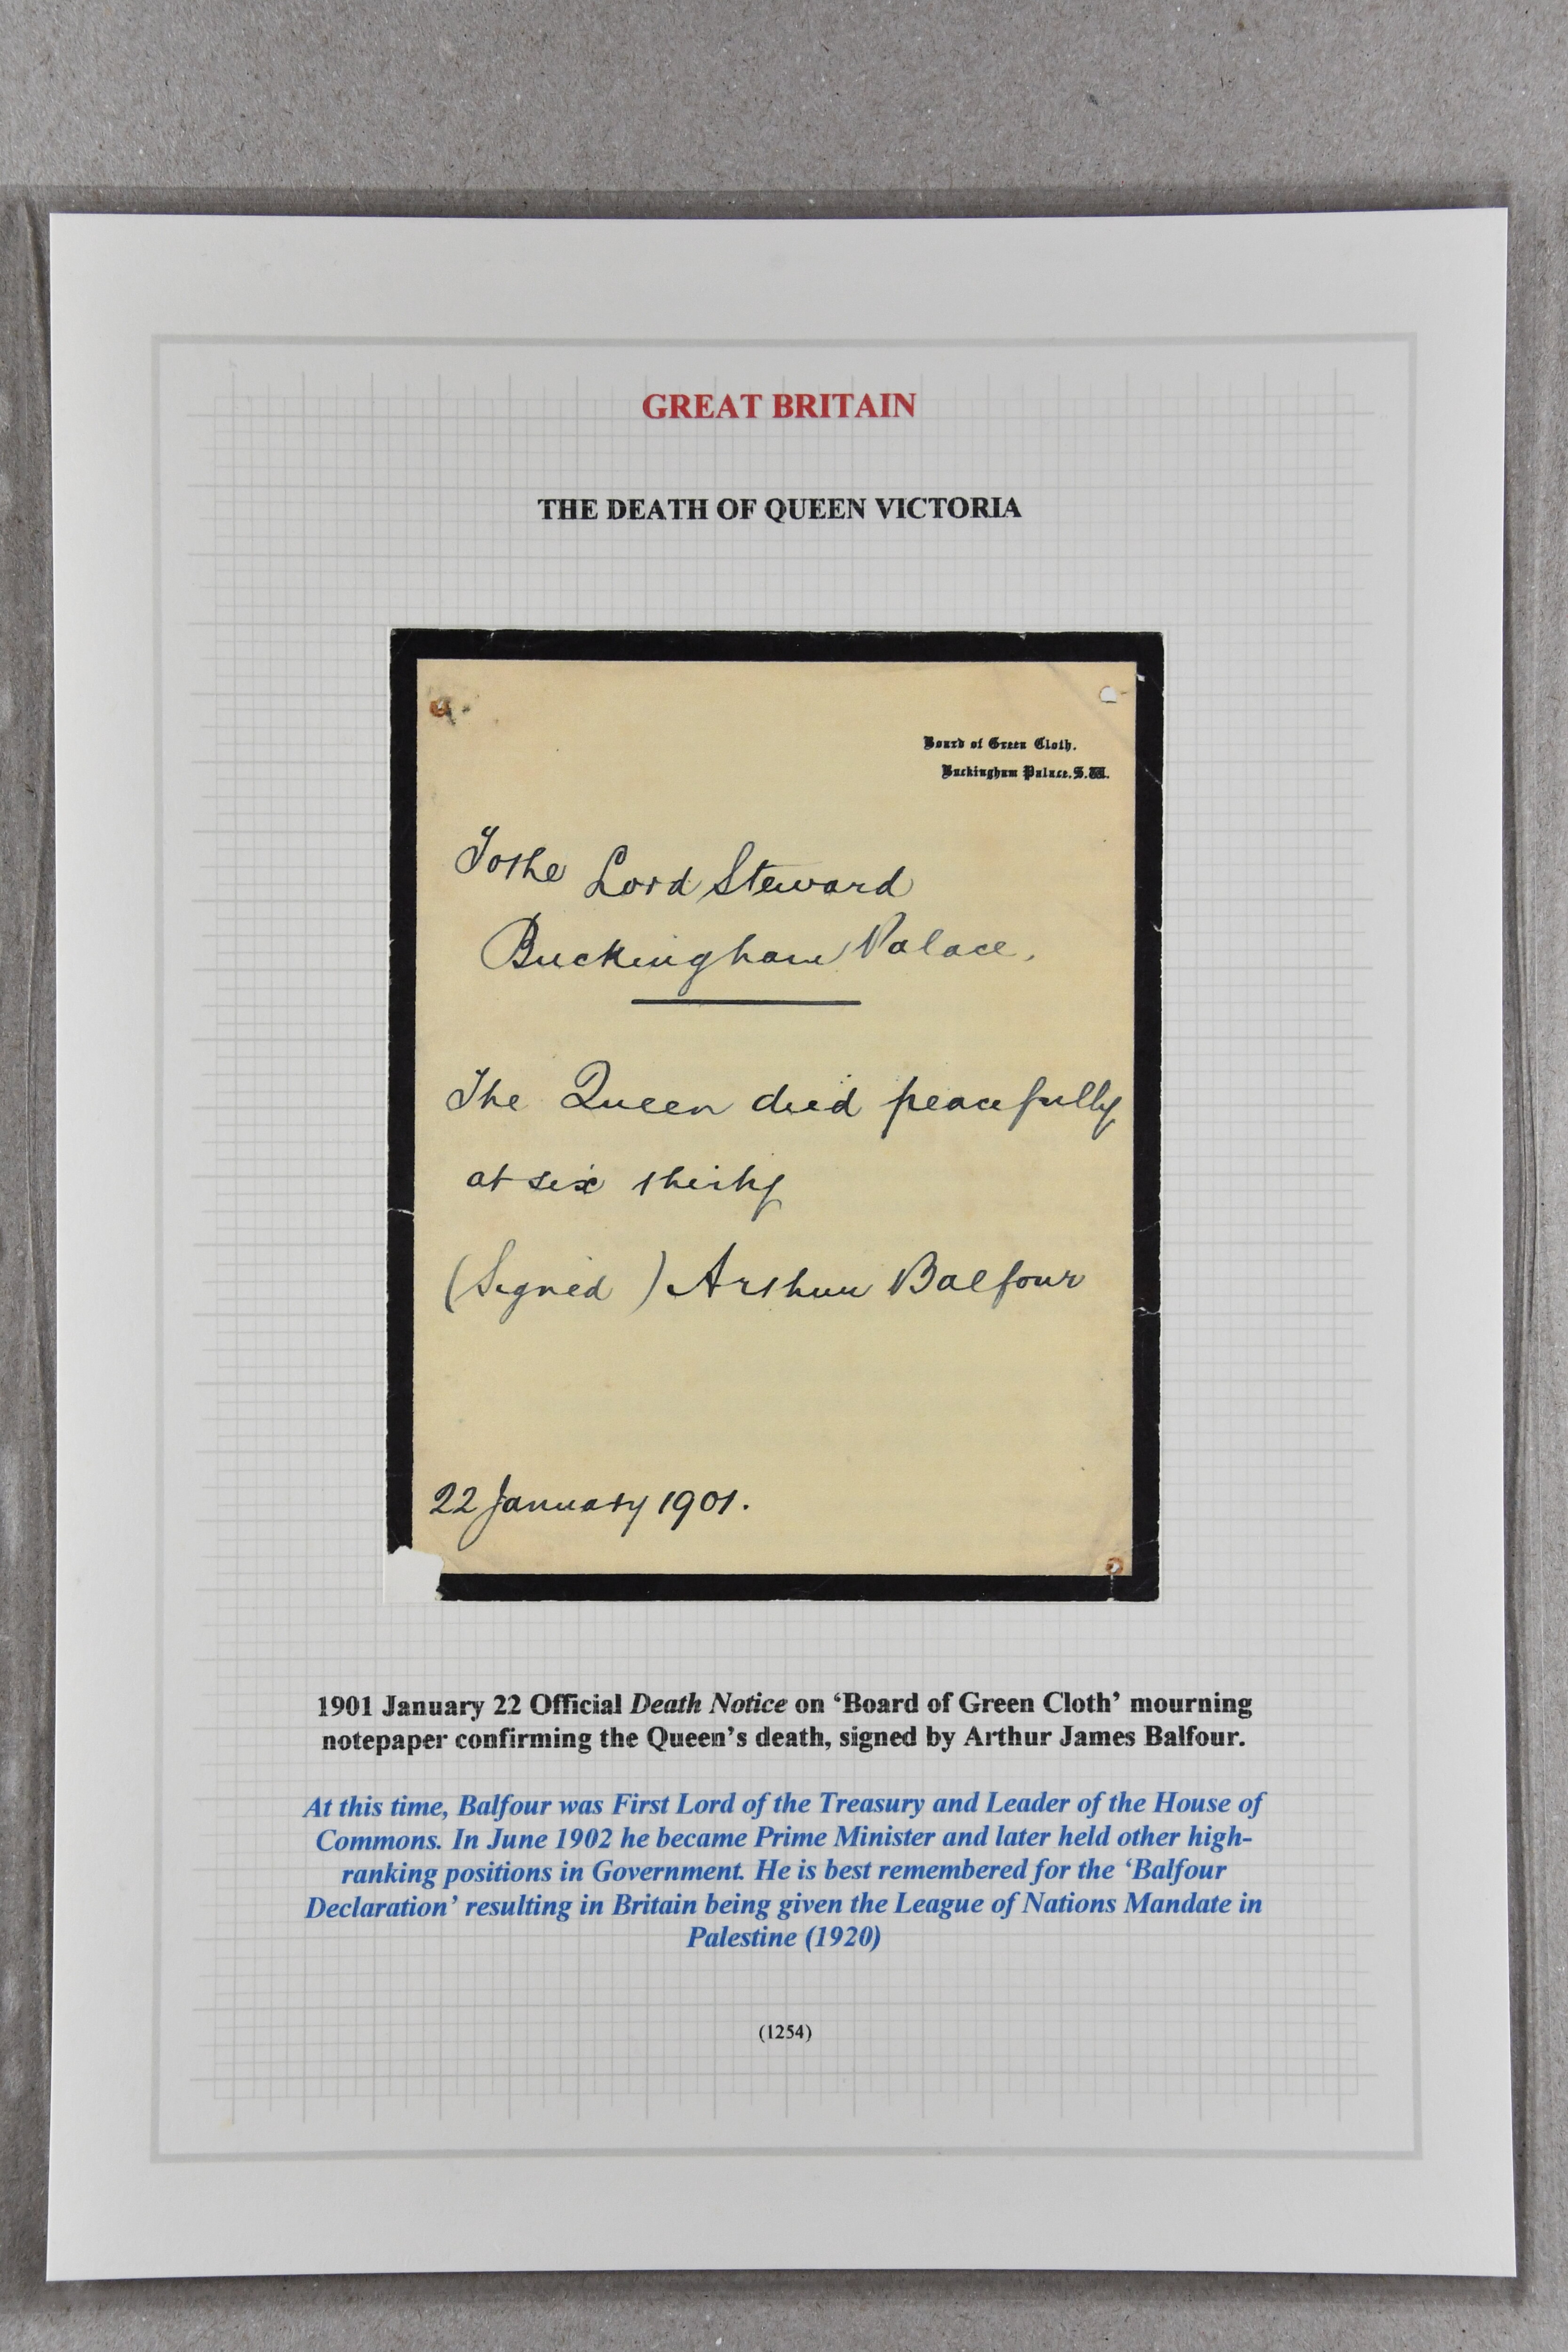 GREAT BRITAIN
THE DEATH OF QUEEN VICTORIA
Board of Green Cloth.
Buckingham Palace. S.W.
To the Lord Steward
Buckingham Palace.
The Queen died peacefully
at six thirty
(Signed) Arthur Balfour
22 January 1901.
1901 January 22 Official Death Notice on ‘Board of Green Cloth’ mourning
notepaper confirming the Queen’s death, signed by Arthur James Balfour.
At this time, Balfour was First Lord of the Treasury and Leader of the House of
Commons. In June 1902 he became Prime Minister and later held other high-
ranking positions in Government. He is best remembered for the ‘Balfour
Declaration’ resulting in Britain being given the League of Nations Mandate in
Palestine (1920)
(1254)